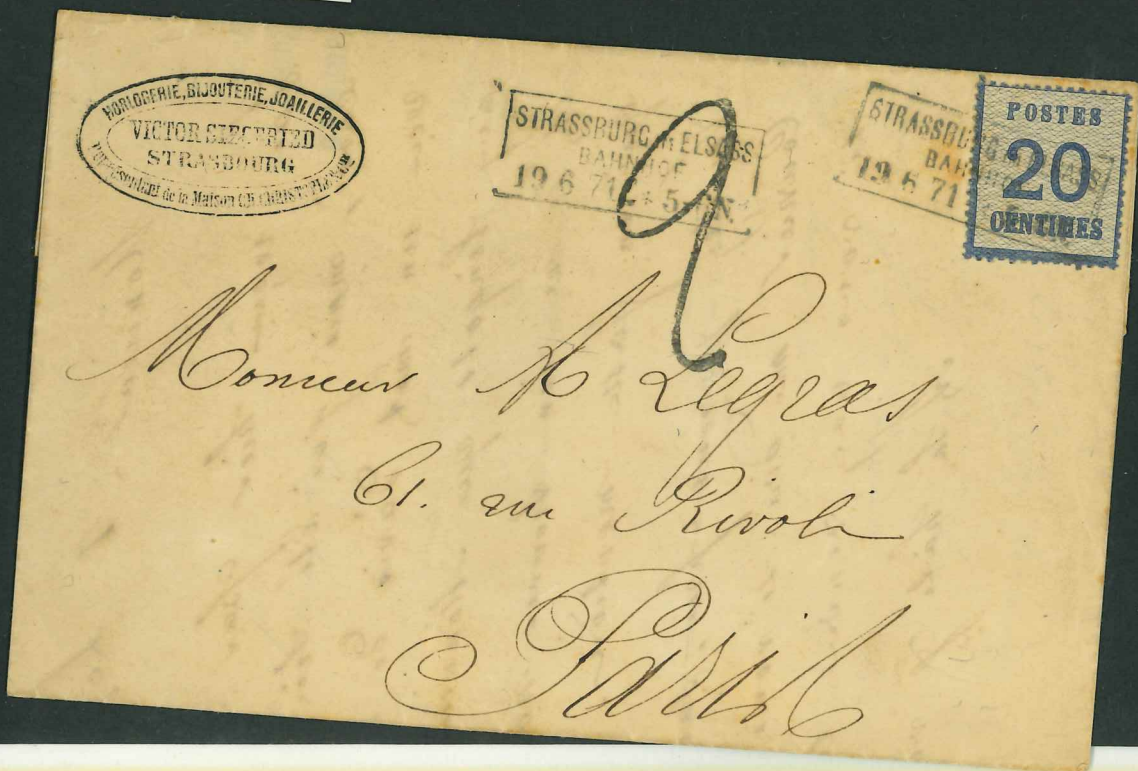 HORLOGERIE, BIJOUTERIE, JOAILLERIE
VICTOR SIEGFRIED
STRASBOURG
Représentant de la Maison CH. CHRISTOFLE & Cie
STRASSBURG in ELSASS
BAHNHOF
19 6 71 2 * 5 N.
2
STRASSBURG
19 6 71
POSTES
20
CENTIMES
Monsieur A Legras
61. rue Rivoli
Paris